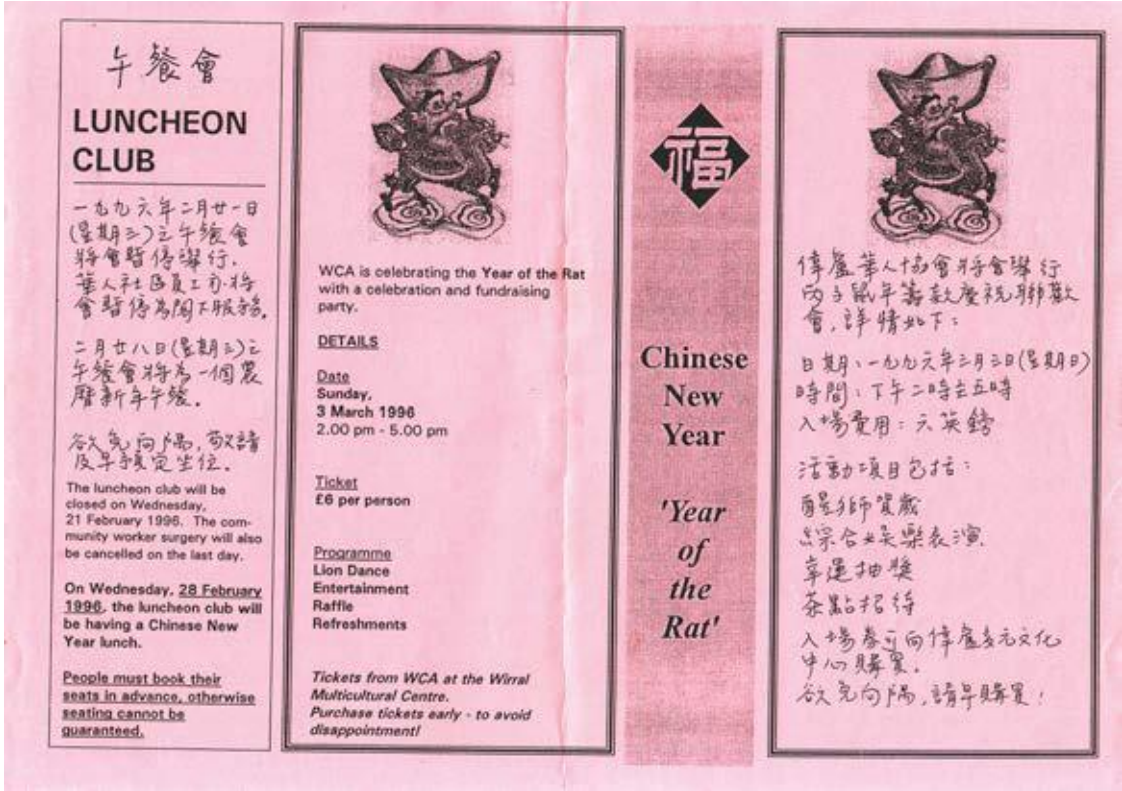 午餐會
LUNCHEON
CLUB
一九九六年二月廿一日
(星期三)之午餐會
將會暫停舉行.
華人社區員工亦將
會暫停為閣下服務.
二月廿八日(星期三)之
午餐會將為一個農
曆新年午餐.
欲免向隅,敬請
及早預定坐位.
The luncheon club will be
closed on Wednesday,
21 February 1996. The com-
munity worker surgery will also
be cancelled on the last day.
On Wednesday, 28 February
1996, the luncheon club will
be having a Chinese New
Year lunch.
People must book their
seats in advance, otherwise
seating cannot be
guaranteed.
WCA is celebrating the Year of the Rat
with a celebration and fundraising
party.
DETAILS
Date
Sunday,
3 March 1996
2.00 pm - 5.00 pm
Ticket
£6 per person
Programme
Lion Dance
Entertainment
Raffle
Refreshments
Tickets from WCA at the Wirral
Multicultural Centre.
Purchase tickets early - to avoid
disappointment!
福
Chinese
New
Year
'Year
of
the
Rat'
偉盧華人協會將會舉行
丙子鼠年籌款慶祝聯歡
會,詳情如下:
日期:一九九六年三月三日(星期日)
時間:下午二時至五時
入場費用:六英鎊
活動項目包括:
醒獅賀歲
綜合娛樂表演
幸運抽獎
茶點招待
入場券可向偉盧多元文化
中心購買.
欲免向隅,請早購買!